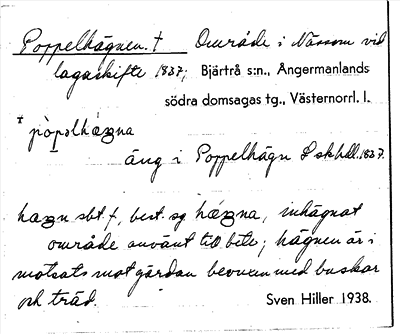 Poppelhägnen. † Område i Nässom vid
lagaskifte 1837; Bjärtrå s:n., Ångermanlands
södra domsagas tg., Västernorrl. l.
* pòpəlhæŋna
äng i Poppelhägn L skhdl. 1837.
hæŋn sbt. f., best. sg hæŋna, inhägnat
område använt till bete; hägnen är i
motsats mot gärdan bevuxen med buskar
och träd.
Sven Hiller 1938.